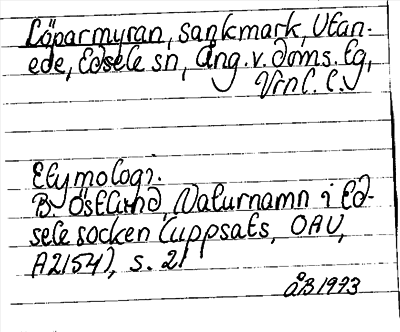 Löparmyran, sankmark, Utan-
ede, Edsele sn, Ång. v. doms. tg,
Vrnl. l.
Etymologi:
B. Östlund, Naturnamn i Ed-
sele socken (uppsats, OAU,
A2154), s. 21
ÅB 1993